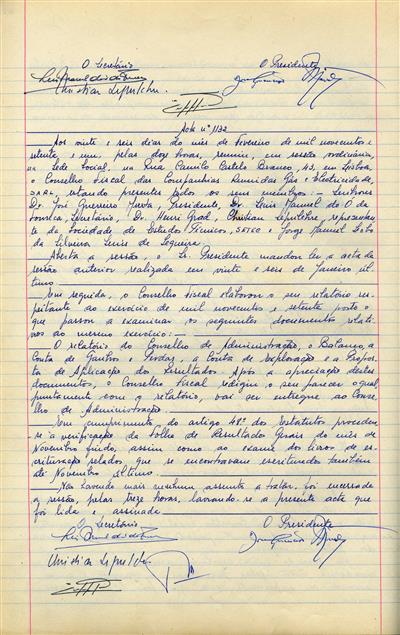 O Secretário O Presidente
Christian Lepeltier
Acta nº 1132
Aos vinte e seis dias do mês de Fevereiro de mil novecentos e
setenta e um, pelas doze horas, reuniu, em sessão ordinária,
na Sede Social, na Rua Camilo Castelo Branco, 43, em Lisboa,
o Conselho Fiscal das Companhias Reunidas Gás e Electricidade,
SARL, estando presentes todos os seus membros: - Senhores
Dr. José Guerreiro Murta, Presidente, Dr. Luís Manuel do Ó da
Fonseca, Secretário, Dr. Henri Grod, Christian Lepeltier, representan-
te da Sociedade de Estudos Técnicos, SETEC e Jorge Manuel
da Silveira Luís de Sequeira
Aberta a sessão o Sr. Presidente mandou ler a acta da
sessão anterior realizada em vinte e seis de Janeiro úl-
timo
Em seguida, o Conselho Fiscal elaborou o seu relatório res-
peitante ao exercício de mil novecentos e setenta posto o
que passou a examinar os seguintes documentos relati-
vos ao mesmo exercício: -
O relatório do Conselho de Administração, o Balanço, a
Conta de Ganhos e Perdas, a Conta de exploração e a Propos-
ta de Aplicação dos Resultados. Após a apreciação destes
documentos, o Conselho Fiscal redigiu o seu parecer o qual
juntamente com o relatório, vai ser entregue ao Conse-
lho de Administração.
Em cumprimento do artigo 48º dos Estatutos procedeu-
se à verificação da Folha de Resultados Gerais do mês de
Novembro findo, assim como ao exame dos livros de es-
crituração selados, que se encontravam escriturados também
até Novembro último.
Não havendo mais nenhum assunto a tratar, foi encerrada
a sessão, pelas treze horas, lavrando-se a presente acta que
foi lida e assinada
O Secretário O Presidente
Christian Lepeltier